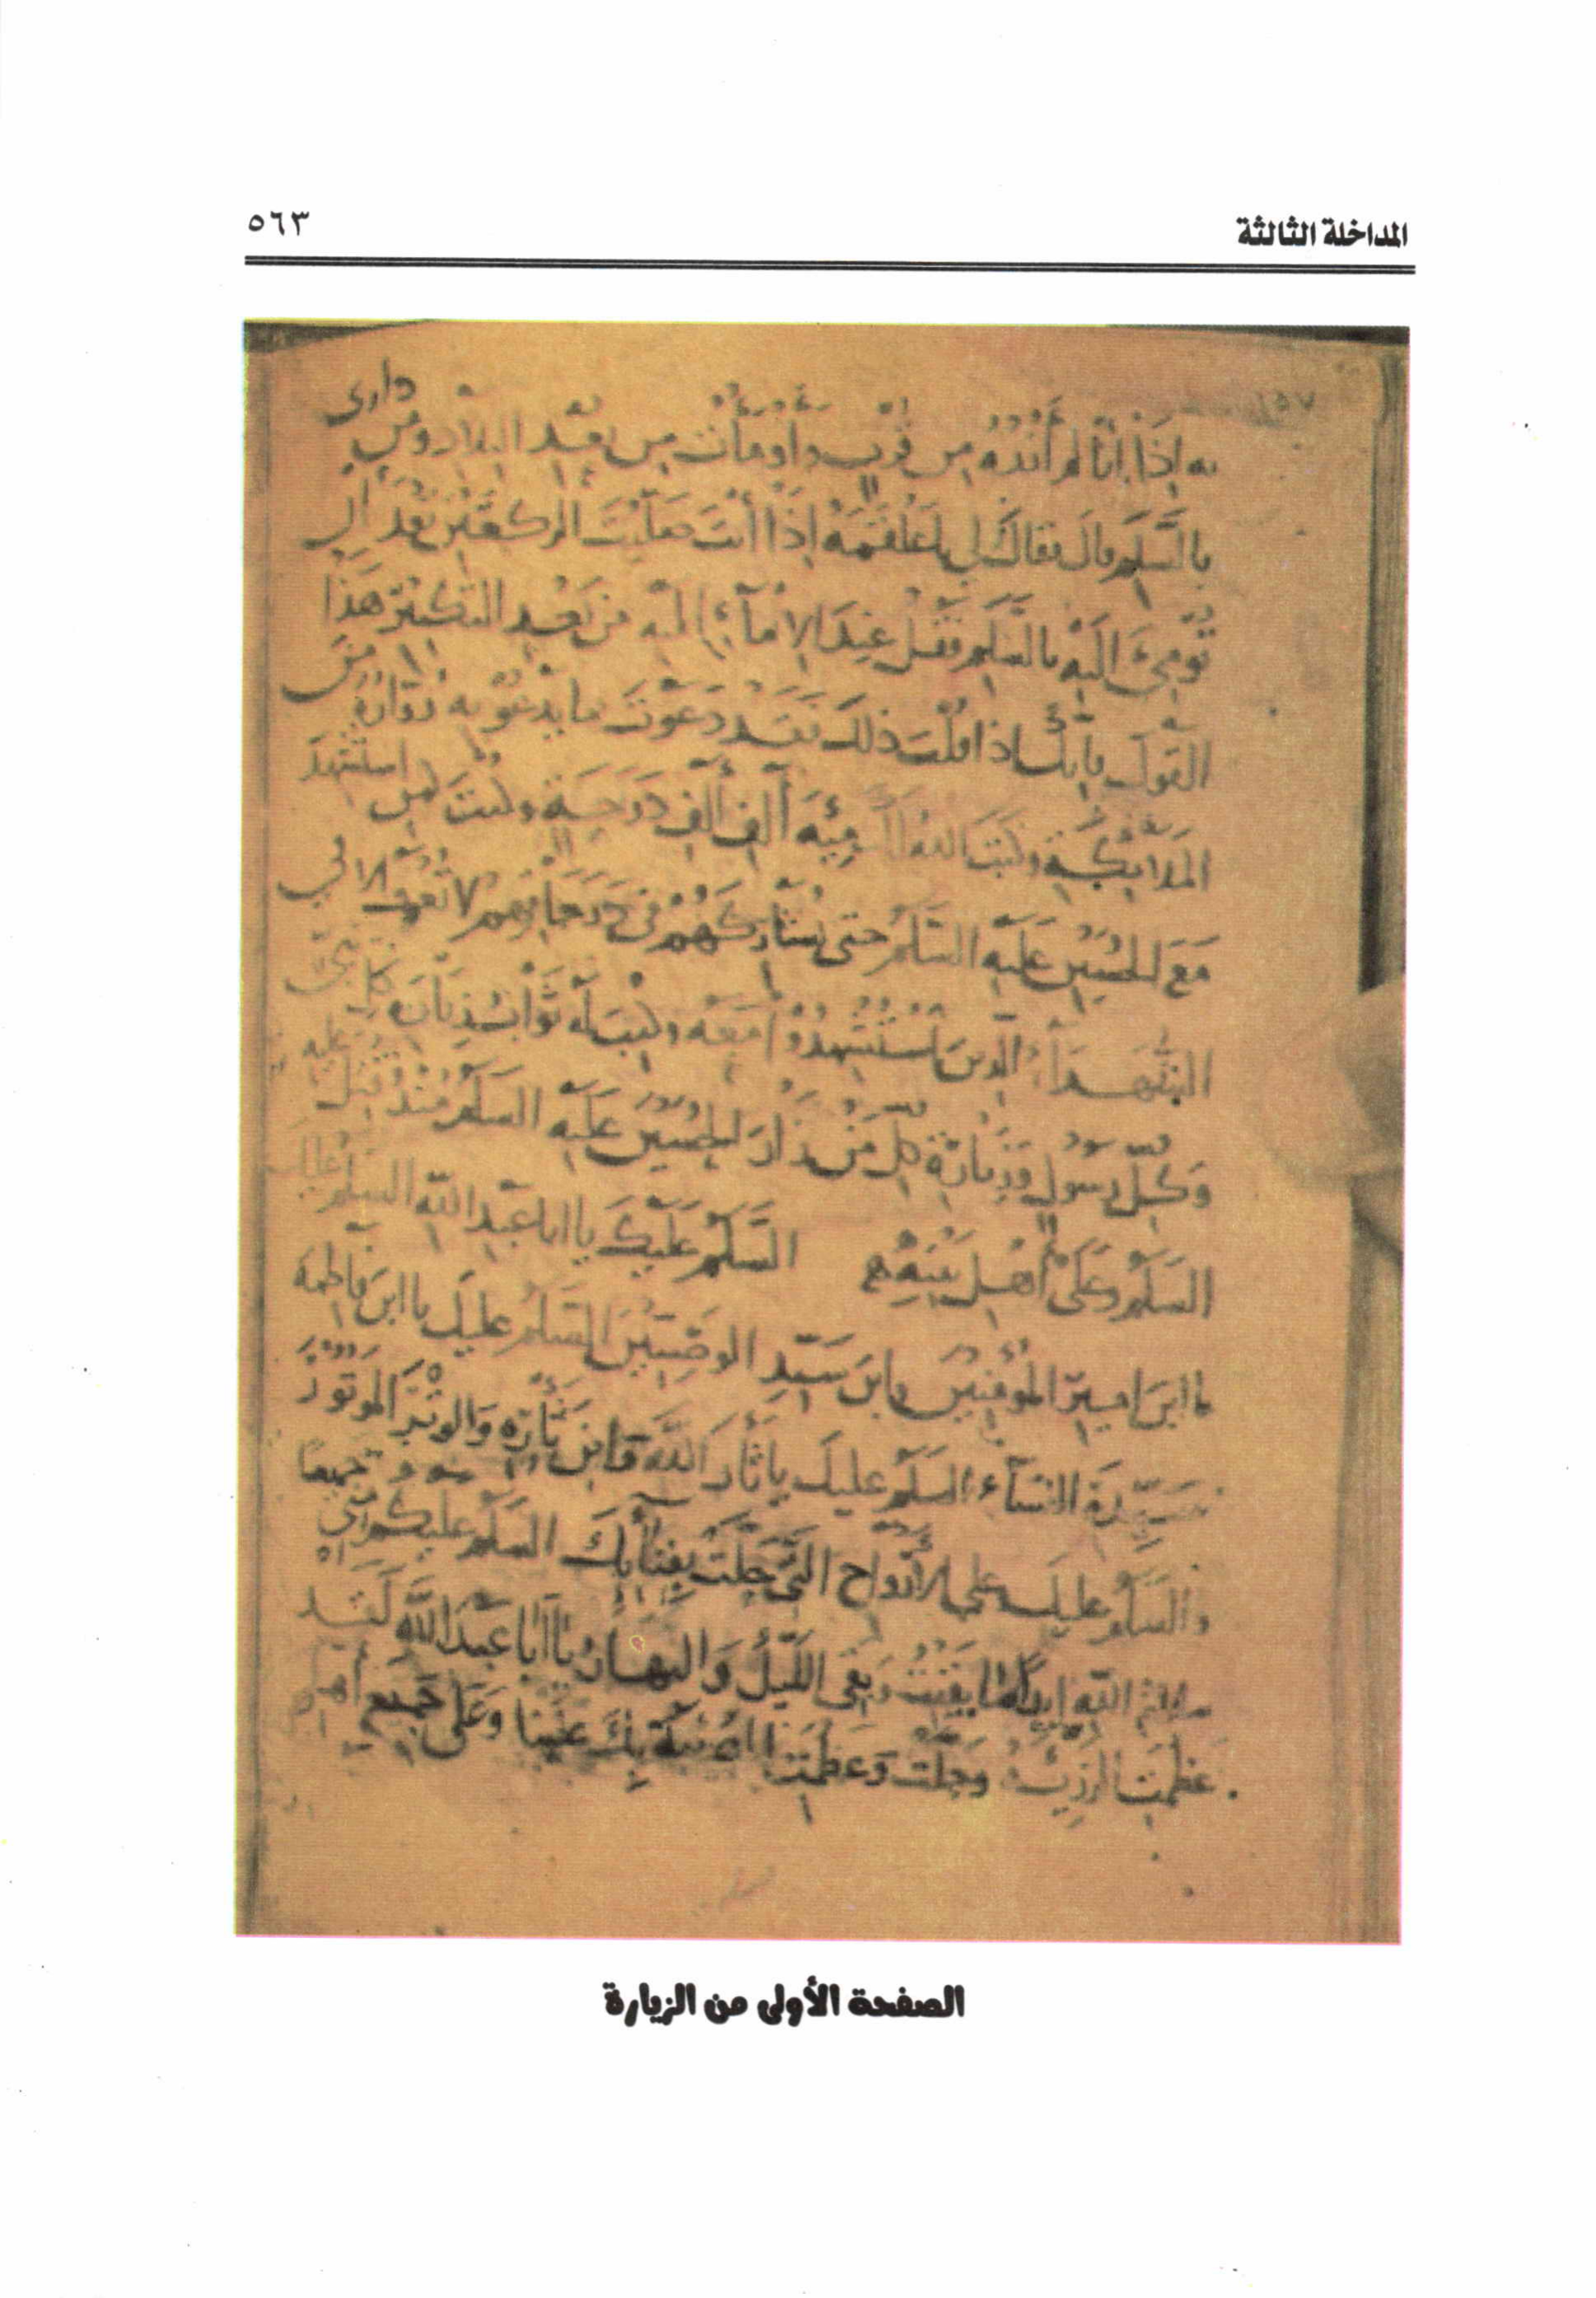 المداخلة الثالثة
٥٦٣
١٥٧
به إِذَا أَنَا لم أَزُرْهُ من قُرْبٍ وأومَأْتُ مِن بُعْدِ البلاد ومن داري
بالسَّلم قال فقال لي يا علقمَةُ إِذَا أنتَ صَلَّيْتَ الركعتين بعد أن
تُومِئَ اليْهِ بالسَّلَمِ فقل عِنْدَ الإِمآءِ إليه من بَعْدِ التكبير هَذَا
القول فإنك إذا قلتَ ذلك فقَد دَعَوْتَ بما يَدْعُو به زوّارُهُ مِنَ
الملائكةِ وكتبَ اللهُ لك مِئَةَ أَلفِ أَلفِ دَرَجَةٍ وكنتَ كمن استشهدَ
مَعَ الحُسَيْنِ عليه السَّلَمُ حتى تُشَارِكَهُمْ في دَرَجاتِهم لا تُعْرَفُ إلا في
الشهَدَاءِ الَّذين اسْتُشْهِدُوْا مَعَهُ وكتِبَ لَهُ ثَوَابُ زِيَارَةِ كل نَبِيٍّ
وَكلِّ رَسُولٍ وَزِيَارَةِ كلِّ مَنْ زَارَ الحُسَيْنَ عَلَيْهِ السَلَمُ مُنْذُ قُتِلَ عليه
السَلَمُ وَعَلى أهْلِ بَيْتِهِ السَّلَمُ عَلَيْكَ يا ابا عبد الله السلم عليك
يا ابن امير المؤمنين وابن سَيّدِ الوصِيّيْنَ السَّلمُ عليك يا ابن فاطِمَة
سَيِّدَةِ النسَآء السلم عليك يا ثَارَ اللَّه وابنَ ثَأْرِهِ وَالوِتْرَ المَوتُورَ
والسَّلمُ عليك وعلى الأَرْوَاحِ التي حَلَّتْ بِفِنَائِكَ السلم عليكم مني جميعًا
سلم الله ابداً ما بقيْتُ وبَقيَ الليْلُ وَالنهَارُ يا أبا عَبْدِ اللَّهِ لقد
عظُمَتِ الرَزِيّةُ وجَلَّت وعَظُمَت المُصِيبَةُ بِكَ عَلَيْنَا وَعَلَى جَمِيعِ أهل
الصفحة الأولى من الزيارة